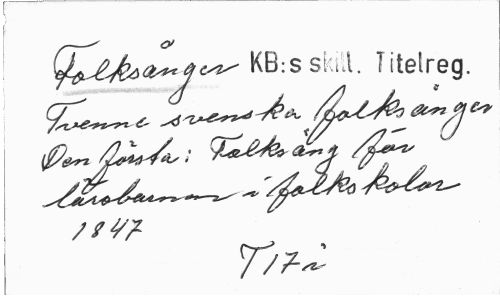 Folksånger KB:s skill. Titelreg.
Tvenne svenska folksånger
Den första: Folksång för
lärobarnen i folkskolor
1847
T 17 i